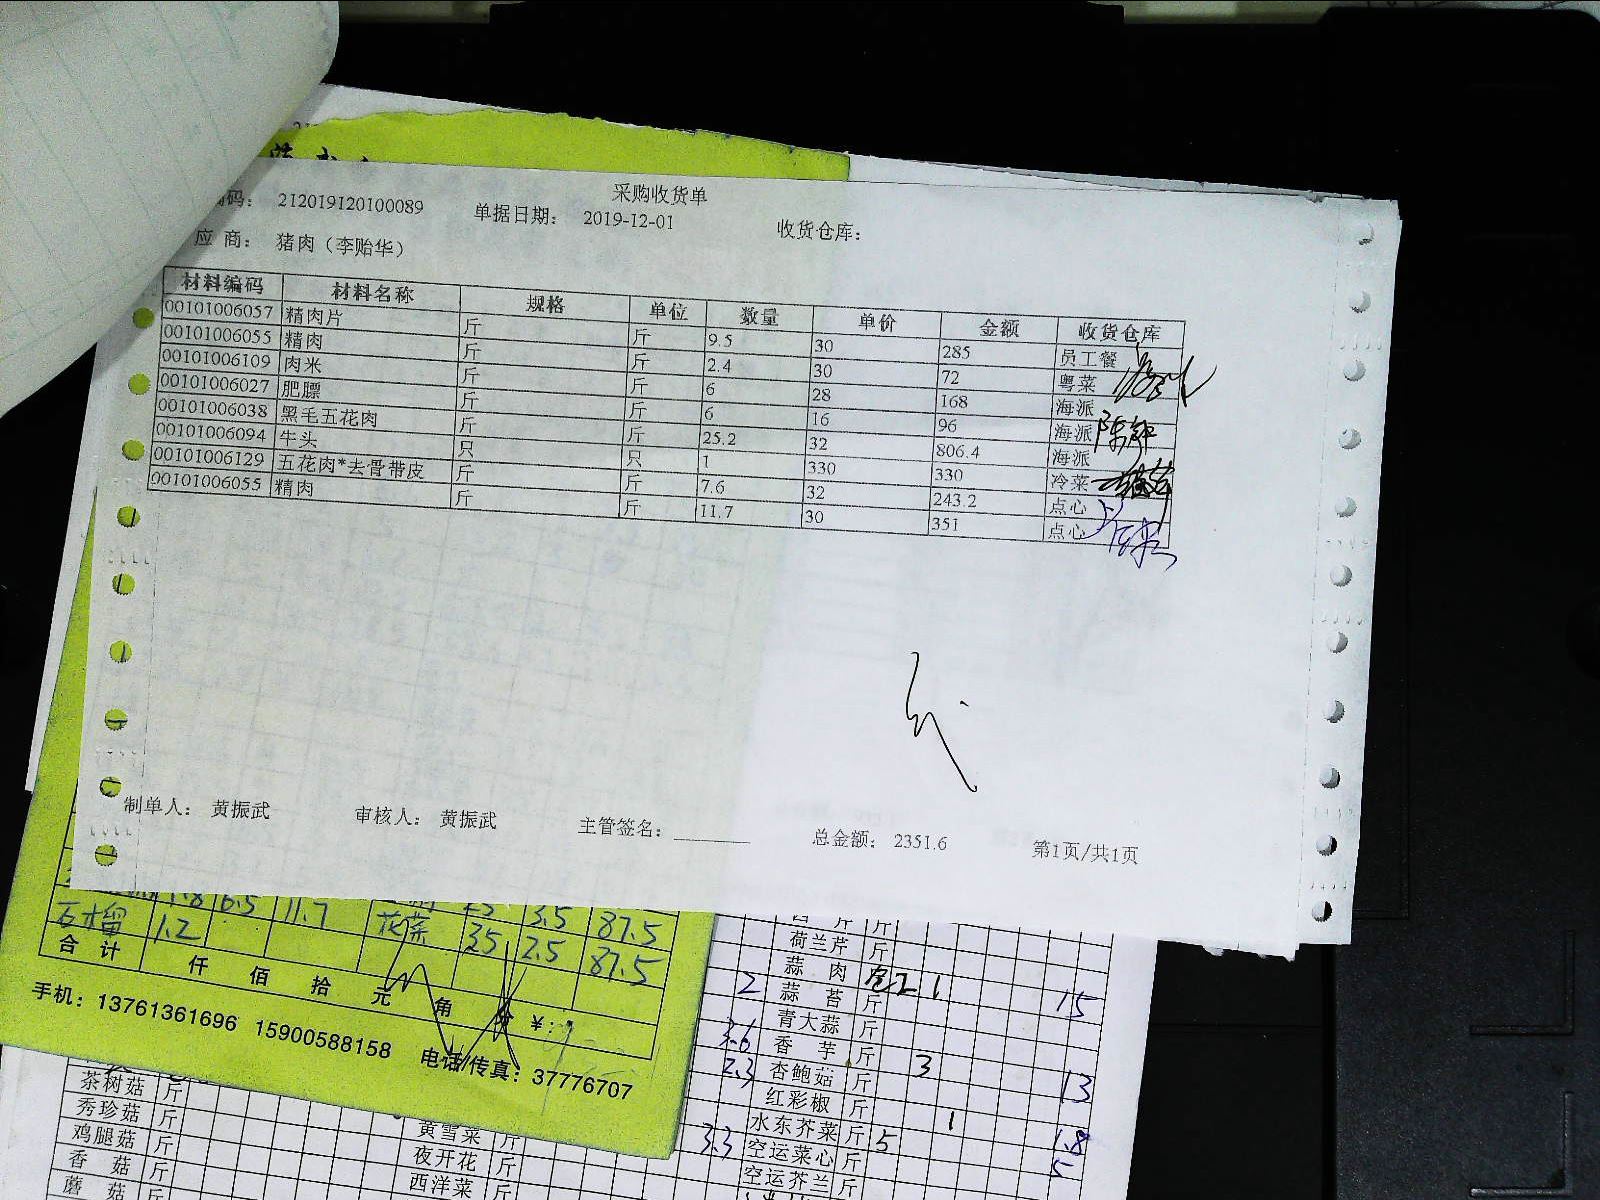 采购收货单
码： 212019120100089 单据日期： 2019-12-01 收货仓库：
应 商： 猪肉（李贻华）
材料编码 材料名称 规格 单位 数量 单价 金额 收货仓库
00101006057 精肉片 斤 斤 9.5 30 285 员工餐
00101006055 精肉 斤 斤 2.4 30 72 粤菜
00101006109 肉米 斤 斤 6 28 168 海派
00101006027 肥膘 斤 斤 6 16 96 海派
00101006038 黑毛五花肉 斤 斤 25.2 32 806.4 海派
00101006094 牛头 只 只 1 330 330 冷菜
00101006129 五花肉*去骨带皮 斤 斤 7.6 32 243.2 点心
00101006055 精肉 斤 斤 11.7 30 351 点心
制单人： 黄振武 审核人： 黄振武 主管签名： 总金额： 2351.6 第1页/共1页
1.8 6.5 11.7 3.5 87.5
石木留 1.2 花菜 35 2.5 87.5
合 计 仟 佰 拾 元 角 分 ¥：
手机：13761361696 15900588158 电话/传真：37776707
斤
荷兰芹 斤
蒜 肉 员工 1 15
2 蒜 苔 斤
青大蒜 斤
3.6 香 芋 斤 3
2.3 杏鲍菇 斤 13
红彩椒 斤
水东芥菜 斤 5 1 1.8
3.3 空运菜心 斤 5
空运芥兰 斤
茶树菇 斤
秀珍菇 斤 黄雪菜 斤
鸡腿菇 斤 夜开花 斤
香 菇 斤 西洋菜 斤
蘑 菇 斤